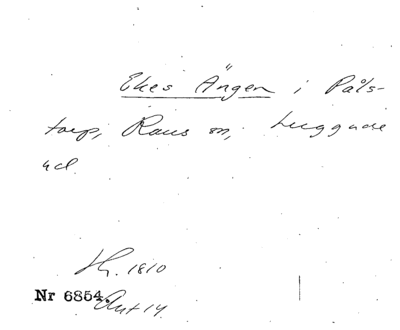 Ekes Ängen i Påls-
torp, Raus sn, Luggude
hd.
1810
Nr 6854. Akt 14.